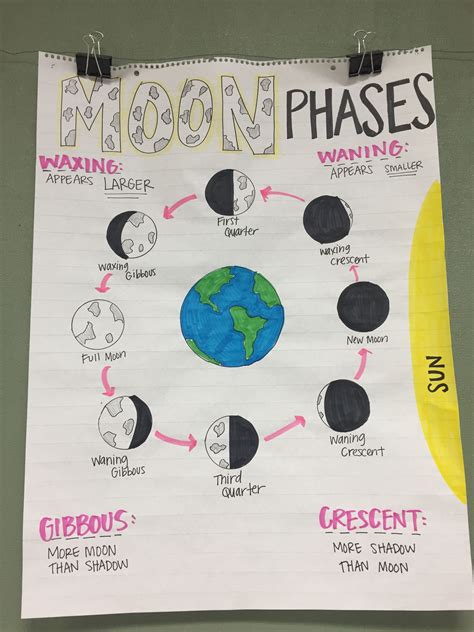 MOON PHASES
WAXING:
APPEARS LARGER
WANING:
APPEARS SMALLER
First
Quarter
Waxing
Gibbous
Waxing
Crescent
Full Moon
New Moon
SUN
Waning
Gibbous
Third
Quarter
Waning
Crescent
GIBBOUS:
MORE MOON
THAN SHADOW
CRESCENT:
MORE SHADOW
THAN MOON